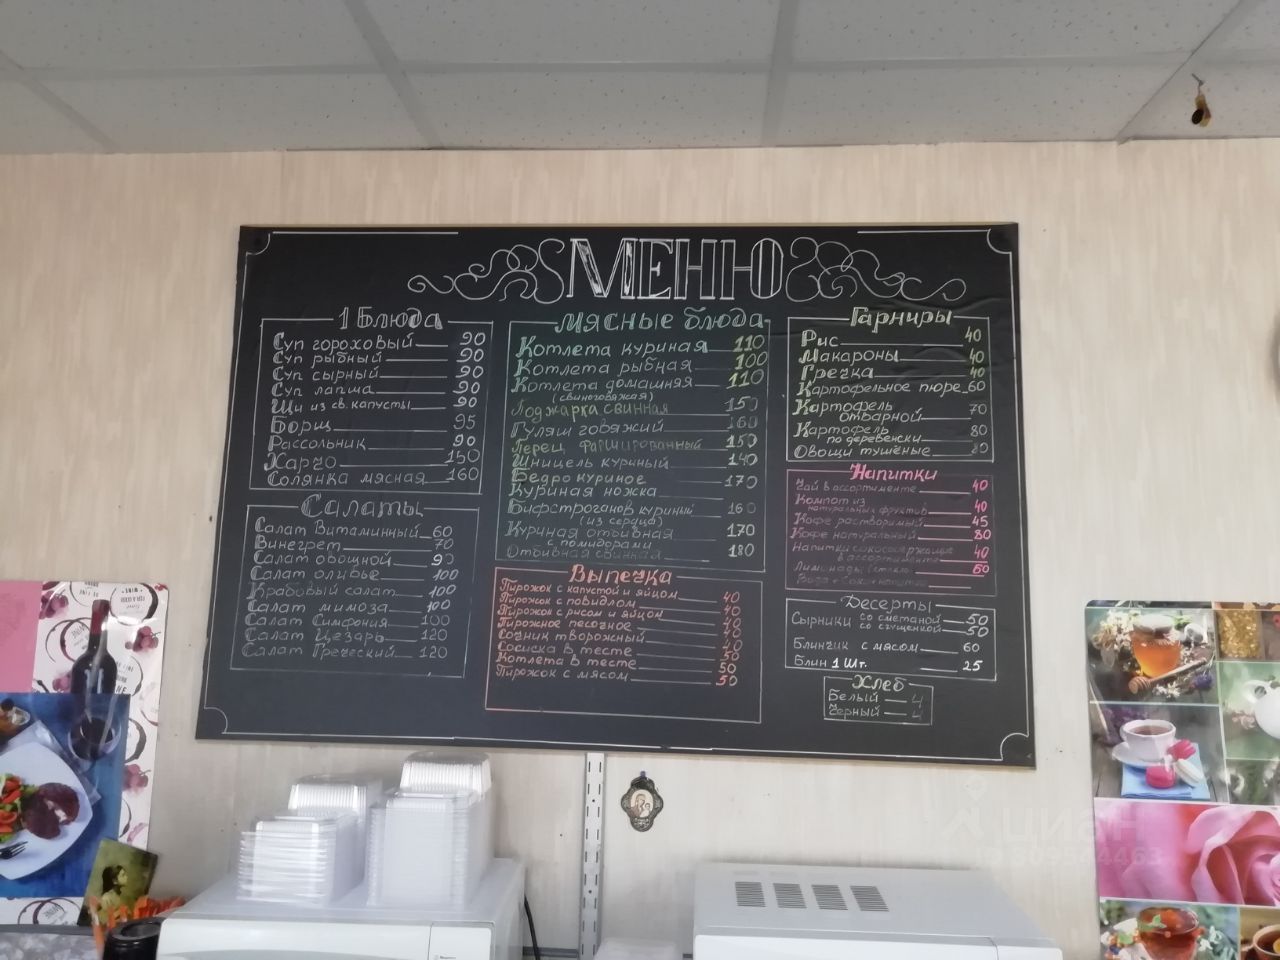 Меню
1 Блюда
Суп гороховый 90
Суп рыбный 90
Суп сырный 90
Суп лапша 90
Щи из св. капусты 90
Борщ 95
Рассольник 90
Харчо 150
Солянка мясная 160
Салаты
Салат Витаминный 60
Винегрет 70
Салат овощной 90
Салат оливье 100
Крабовый салат 100
Салат мимоза 100
Салат Симфония 100
Салат Цезарь 120
Салат Греческий 120
Мясные блюда
Котлета куриная 110
Котлета рыбная 100
Котлета домашняя 110
(свиноговяжая)
Поджарка свинная 150
Гуляш говяжий 160
Перец фаршированный 150
Шницель куриный 140
Бедро куриное 170
Куриная ножка
Бифстроганов куриный 160
(из сердца)
Куриная отбивная 170
с помидорами
Отбивная свинная 180
Выпечка
Пирожок с капустой и яйцом 40
Пирожок с повидлом 40
Пирожок с рисом и яйцом 40
Пирожное песочное 40
Сочник творожный 40
Сосиска в тесте 50
Котлета в тесте 50
Пирожок с мясом 50
Гарниры
Рис 40
Макароны 40
Гречка 40
Картофельное пюре 60
Картофель
отварной 70
Картофель 80
по деревенски
Овощи тушёные 80
Напитки
Чай в ассортименте 40
Компот из
натуральных фруктов 40
Кофе растворимый 45
Кофе натуральный 80
Напитки сокосодержащие
в ассортименте 40
Лимонады стекло 60
Десерты
Сырники со сметаной 50
со сгущенкой 50
Блинчик с мясом 60
Блин 1 шт. 25
Хлеб
Белый 4
Черный 4
циан